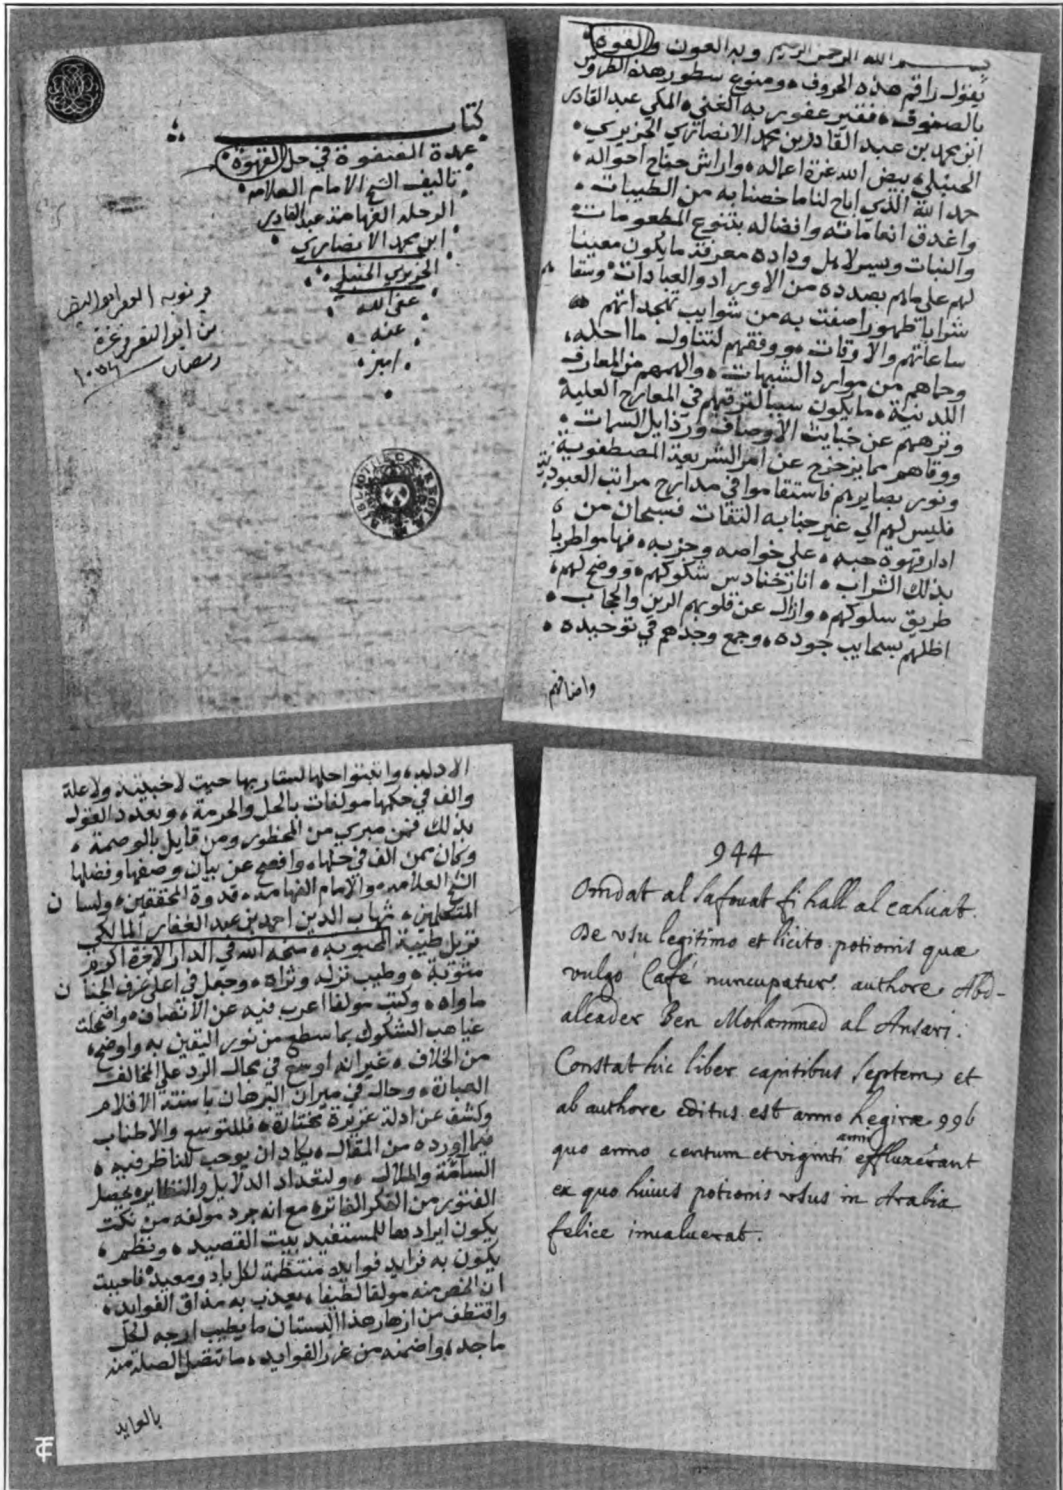 كتاب
عمدة الصفوة في حل القهوة
تاليف الشيخ الامام العلامه
الرحله الفهامة عبد القادر
ابن محمد الانصاري
الجزيري الحنبلي
عفى الله
عنه
امين
بسم الله الرحمن الرحيم وبه العون والقوة
يقول راقم هذه الحروف ومنوع سطور هذه الظروف
بالصنوف فقير عفو ربه الغني المكي عبد القادر
ابن محمد بن عبد القادر بن محمد الانصاري الجزيري
الحنبلي بيض الله غرة اعماله وراش جناح احواله
حمد الله الذي اباح لنا ما خصنا به من الطيبات
واغدق انعاماته وافضاله بتنوع المطعومات
والنبات ويسر لاهل وداده معرفة ما يكون معينا
لهم على ماهم بصدده من الاوراد والعبادات وسقا
شرابا طهورا صفت به من شوايب
ساعاتهم والاوقات ووفقهم لتناول ما احله
وحماهم من موارد الشبهات والهمهم من المعارف
اللدنية ما يكون سببا لترقيهم في المعارج العلية
ونزههم عن خبايث الاوصاف ورذايل السمات
ووقاهم مما يزحزح عن امر الشريعة المصطفوية
ونور بصايرهم فاستقاموا في مدارج مراتب العبودية
فليس لهم الي غير جنابه التفات فسبحان من
ادار قهوة حبه على خواصه وحزبه فهاموا طربا
بذلك الشراب انار حنادس شكوكهم ووضح لهم
طريق سلوكهم وازال عن قلوبهم الرين والحجاب
اظلهم بسحايب جوده وجمع وجدهم في توحيده
الادله واثبتوا حلها لشاربها حيث لا خبيثة ولا علة
والف في حكمها مولفات بالحل والحرمة وتعدد القول
بذلك فمن مبري من المحظور ومن قايل بالوصمة
وكان ممن الف في حلها وافصح عن بيان وصفها وفضلها
الشيخ العلامه والامام الفهامه قدوة المحققين ولسان
المتكلمين شهاب الدين احمد بن عبد الغفار المالكي
نزيل طيبة المحبوبه منحه الله في الدار الاخرة اكرم
مثوبة وطيب نزله وثراه وجعل في اعلى غرف الجنان
ماواه وكتب مولفا اعرب فيه عن الانصاف واضمحلت
غياهب الشكوك بما سطع من نور اليقين به واوضح
من الخلاف غير انه اوسع في مجال الرد على المخالف
العبارة وجال في ميدان البرهان باسنة الاقلام
وكشف عن ادلة عزيزة مختارة فللتوسع والاطناب
فيما اورده من المقال يكاد ان يوجب للناظر فيه
السآمة والملال ولتعداد الدلايل والنظاير يحصل
الفتور من الفكر الفاتره مع انه جرد مولفه من نكت
يكون ايرادها للمستفيد بيت القصيد ونظم
يكون به فرايد فوايده منتظمة لكل باد ومعيد فاحببت
ان الخص منه مولفا لطيفا يعذب به مذاق الفوايد
واقتطف من ازهار هذا البستان ما يطيب ارجه لكل
ماجد واضمنه من غرر الفوايد ما تتصل الصلة منه
بالعايد
944
Omdat al Safouat fi hall al cahuat.
De vsu legitimo et licito potionis quæ
vulgo Café nuncupatur. authore Abd-
alcader Ben Mohammed al Ansari.
Constat hic liber capitibus septem, et
ab authore editus est anno hegiræ 996
quo anno centum et viginti anni effluxerant
ex quo huius potionis vsus in Arabia
felice inualuerat.